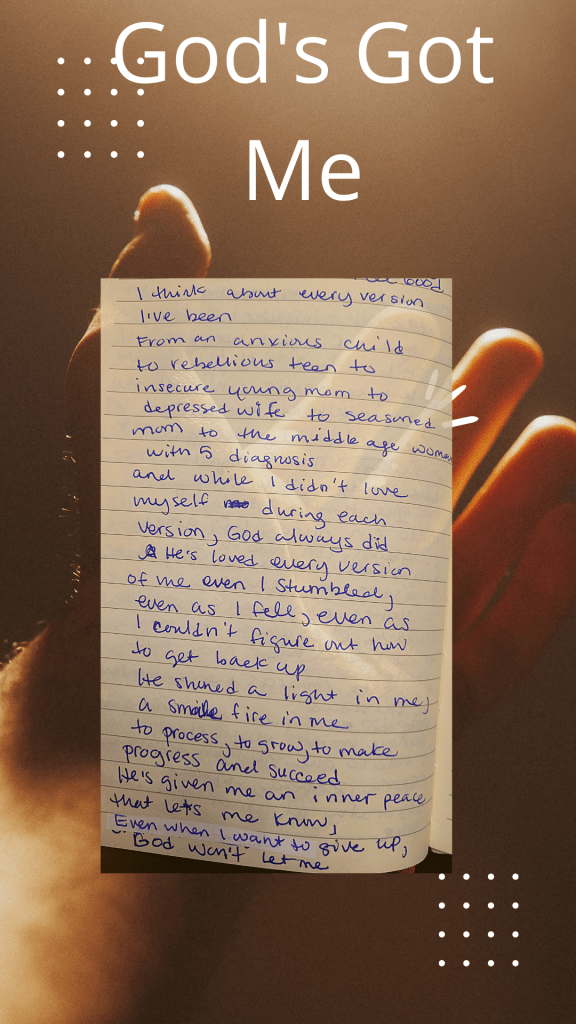 God's Got
Me
feel Good
I think about every version
I've been
From an anxious child
to rebellious teen to
insecure young mom to
depressed wife to seasoned
mom to the middle age woman
with 5 diagnosis
and while I didn't love
myself during each
version, God always did
He's loved every version
of me even I stumbled,
even as I fell, even as
I couldn't figure out how
to get back up
He shined a light in me,
a smale fire in me
to process, to grow, to make
progress and succeed
He's given me an inner peace
that lets me know,
Even when I want to give up,
God won't let me